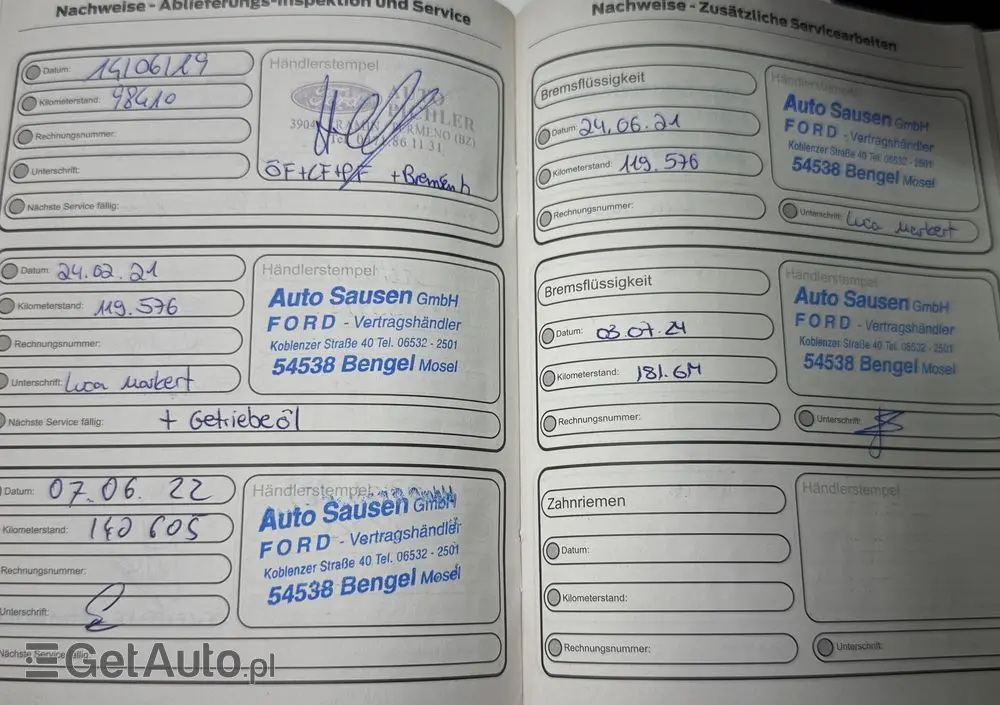 Nachweise - Ablieferungs-Inspektion und Service
Datum: 14/06/19
Kilometerstand: 98410
Rechnungsnummer:
Unterschrift:
Nächste Service fällig:
Händlerstempel
Ford
AUTO
PICHLER
ÖF+LF+PF +Bremsenh
Datum: 24.02.21
Kilometerstand: 119.576
Rechnungsnummer:
Unterschrift: Luca Markert
Nächste Service fällig: + Getriebeöl
Händlerstempel
Auto Sausen GmbH
FORD - Vertragshändler
Koblenzer Straße 40 Tel. 06532 - 2501
54538 Bengel Mosel
Datum: 07.06.22
Kilometerstand: 140 605
Rechnungsnummer:
Unterschrift:
Nächste Service fällig:
Händlerstempel
Auto Sausen GmbH
FORD - Vertragshändler
Koblenzer Straße 40 Tel. 06532 - 2501
54538 Bengel Mosel
Nachweise - Zusätzliche Servicearbeiten
Bremsflüssigkeit
Datum: 24.06.21
Kilometerstand: 119.576
Rechnungsnummer:
Händlerstempel
Auto Sausen GmbH
FORD - Vertragshändler
Koblenzer Straße 40 Tel. 06532 - 2501
54538 Bengel Mosel
Unterschrift: Luca Markert
Bremsflüssigkeit
Datum: 03.07.24
Kilometerstand: 181.611
Rechnungsnummer:
Händlerstempel
Auto Sausen GmbH
FORD - Vertragshändler
Koblenzer Straße 40 Tel. 06532 - 2501
54538 Bengel Mosel
Unterschrift:
Zahnriemen
Datum:
Kilometerstand:
Rechnungsnummer:
Händlerstempel
Unterschrift:
GetAuto.pl